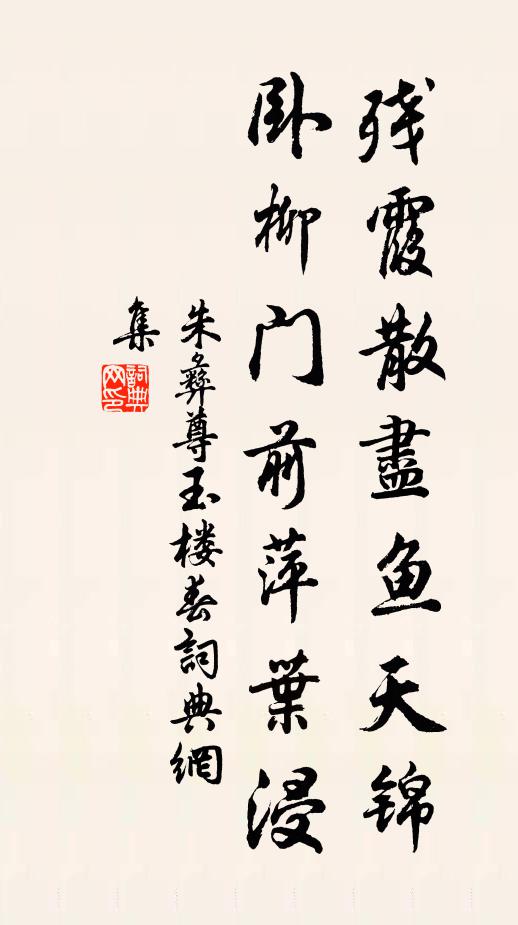 残霞散盡鱼天锦
卧柳门前萍葉浸
朱彝尊玉楼春詞典網
集
詞典
网印